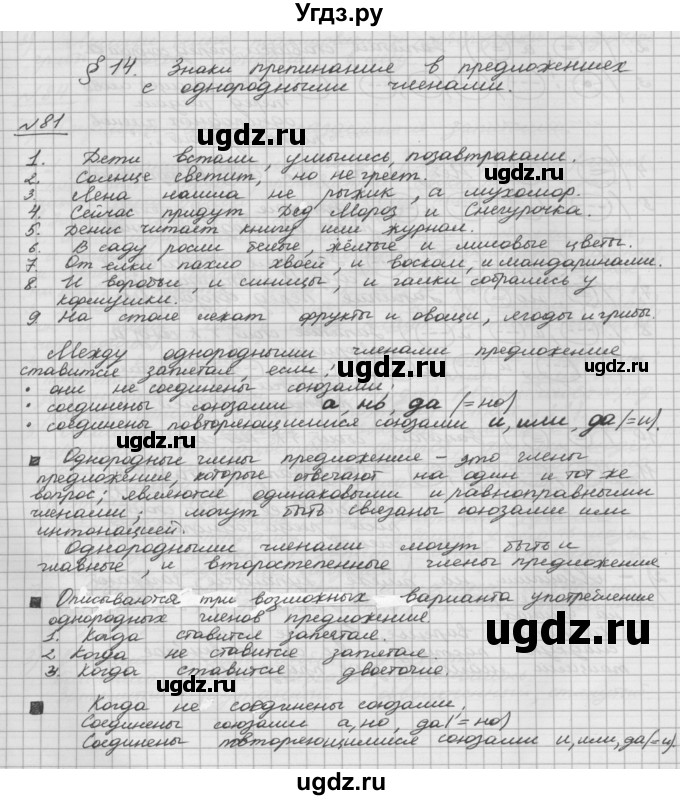 Угдз.ру
§ 14. Знаки препинания в предложениях
с однородными членами.
ugdz.ru
№81
ugdz.ru ugdz.ru
1. Дети встали, умылись, позавтракали.
2. Солнце светит, но не греет.
3. Лена нашла не рыжик, а мухомор.
4. Сейчас придут Дед Мороз и Снегурочка.
5. Денис читает книгу или журнал.
6. В саду росли белые, жёлтые и лиловые цветы.
7. От ёлки пахло хвоей, и воском, и мандаринами.
8. И воробьи, и синицы, и галки собрались у
кормушки.
ugdz.ru
9. На столе лежат фрукты и овощи, ягоды и грибы.
Между однородными членами предложения
ставится запятая, если:
ugdz.ru
• они не соединены союзами;
• соединены союзами а, но, да (=но)
• соединены повторяющимися союзами и, или, да(=и).
Однородные члены предложения – это члены
предложения, которые отвечают на один и тот же
вопрос; являются одинаковыми и равноправными
членами; могут быть связаны союзами или
интонацией.
ugdz.ru
Однородными членами могут быть и
главные, и второстепенные члены предложения.
ugdz.ru
Описываются три возможных варианта употребления
однородных членов предложения
1. Когда ставится запятая.
ugdz.ru
2. Когда не ставится запятая.
3. Когда ставится двоеточие.
ugdz.ru
Когда не соединены союзами.
Соединены союзами а, но, да(=но)
ugdz.ru
Соединены повторяющимися союзами и, или, да(=и).
ugdz.ru